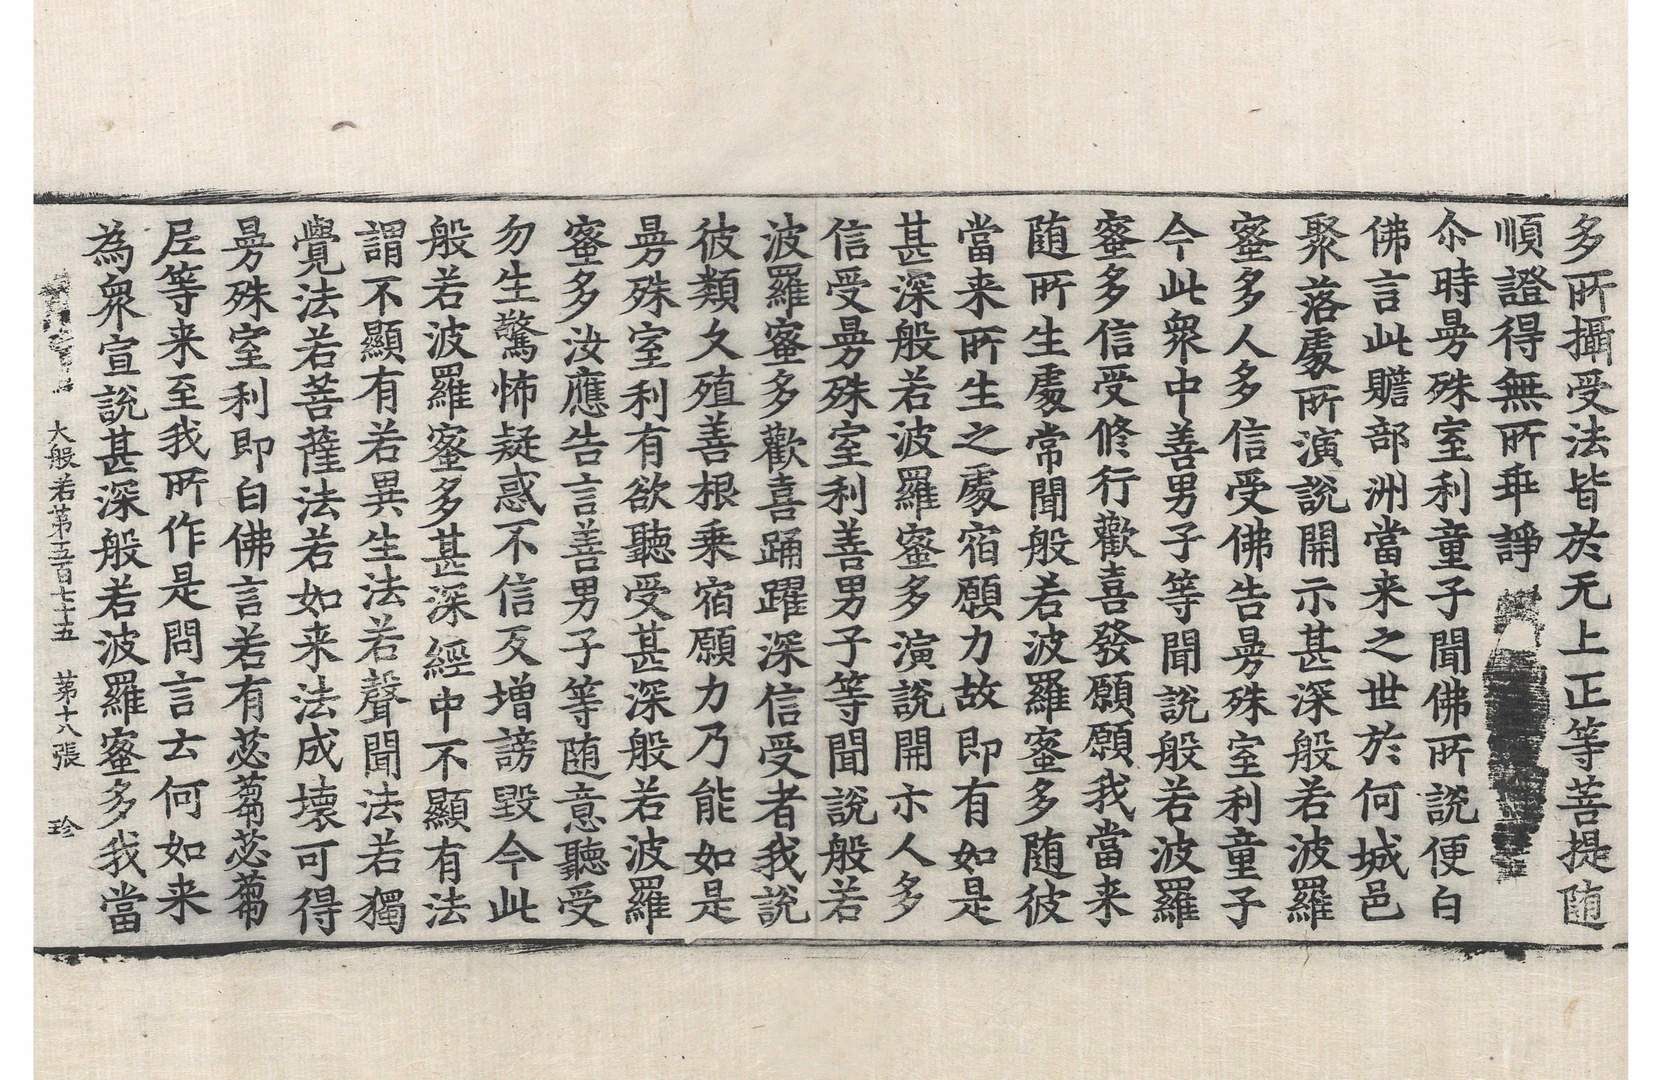 多所攝受法皆於无上正等菩提随
順證得無所乖諍
尒時曼殊室利童子聞佛所說便白
佛言此贍部洲當来之世於何城邑
聚落處所演說開示甚深般若波羅
蜜多人多信受佛告曼殊室利童子
今此衆中善男子等聞說般若波羅
蜜多信受修行歡喜發願願我當来
随所生處常聞般若波羅蜜多随彼
當来所生之處宿願力故即有如是
甚深般若波羅蜜多演說開示人多
信受曼殊室利善男子等聞說般若
波羅蜜多歡喜踊躍深信受者我說
彼類久殖善根乗宿願力乃能如是
曼殊室利有欲聽受甚深般若波羅
蜜多汝應告言善男子等随意聽受
勿生驚怖疑惑不信反增謗毀今此
般若波羅蜜多甚深經中不顯有法
謂不顯有若異生法若聲聞法若獨
覺法若菩薩法若如来法成壞可得
曼殊室利即白佛言若有苾蒭苾蒭
尼等来至我所作是問言云何如来
為衆宣說甚深般若波羅蜜多我當
大般若第五百七十五 第十八張 珍